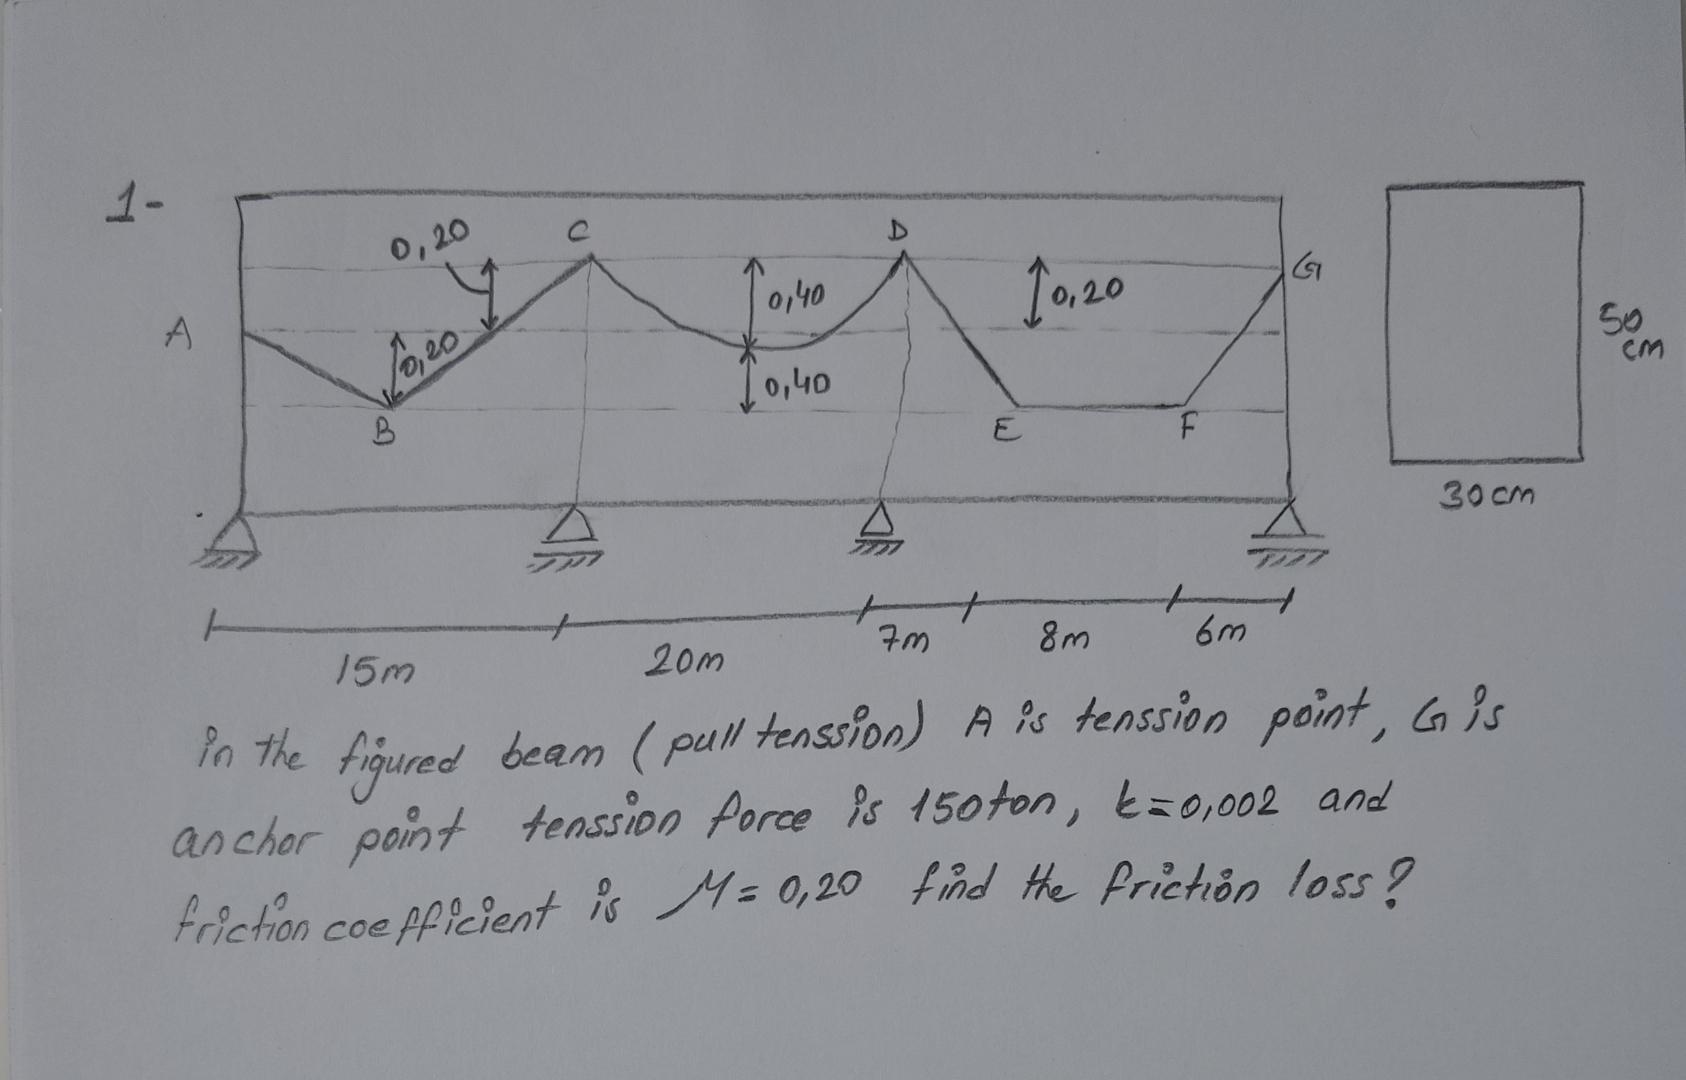 1-
0,20
C
D
0,40
0,20
G
A
0,20
0,40
B
E
F
50
cm
30cm
15m
20m
7m
8m
6m
in the figured beam (pull tenssion) A is tenssion point, G is
anchor point tenssion force is 150ton, k=0,002 and
friction coefficient is M=0,20 find the friction loss?